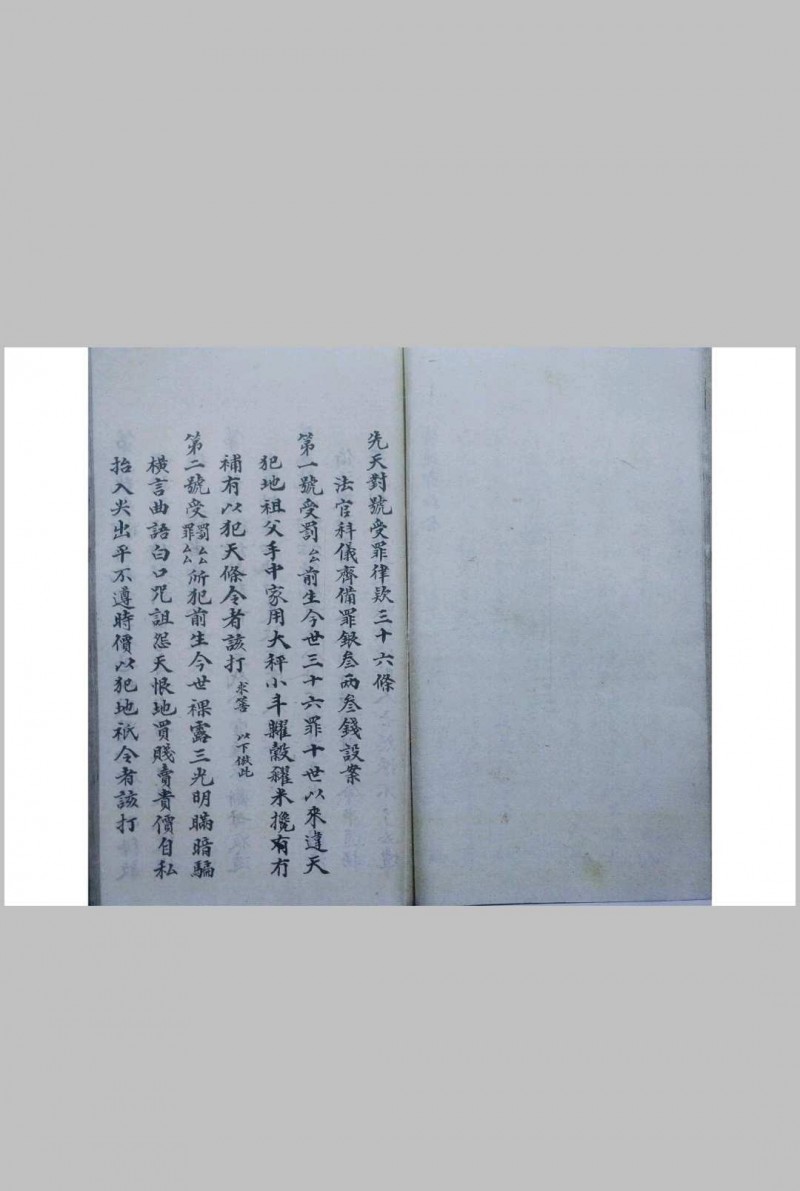 先天對號受罪律欵三十六條
法官科儀齊備罪銀叁両叁錢設案
第一號受罰厶厶前生今世三十六罪十世以來違天
犯地祖父手中家用大秤小斗糶穀糴米攙有冇
補有以犯天條令者該打 求答 以下倣此
第二號受罰罪厶厶厶厶所犯前生今世裸露三光明瞞暗騙
橫言曲語白口咒詛怨天恨地買賤賣貴價自私
抬入尖出平不遵時價以犯地祇令者該打